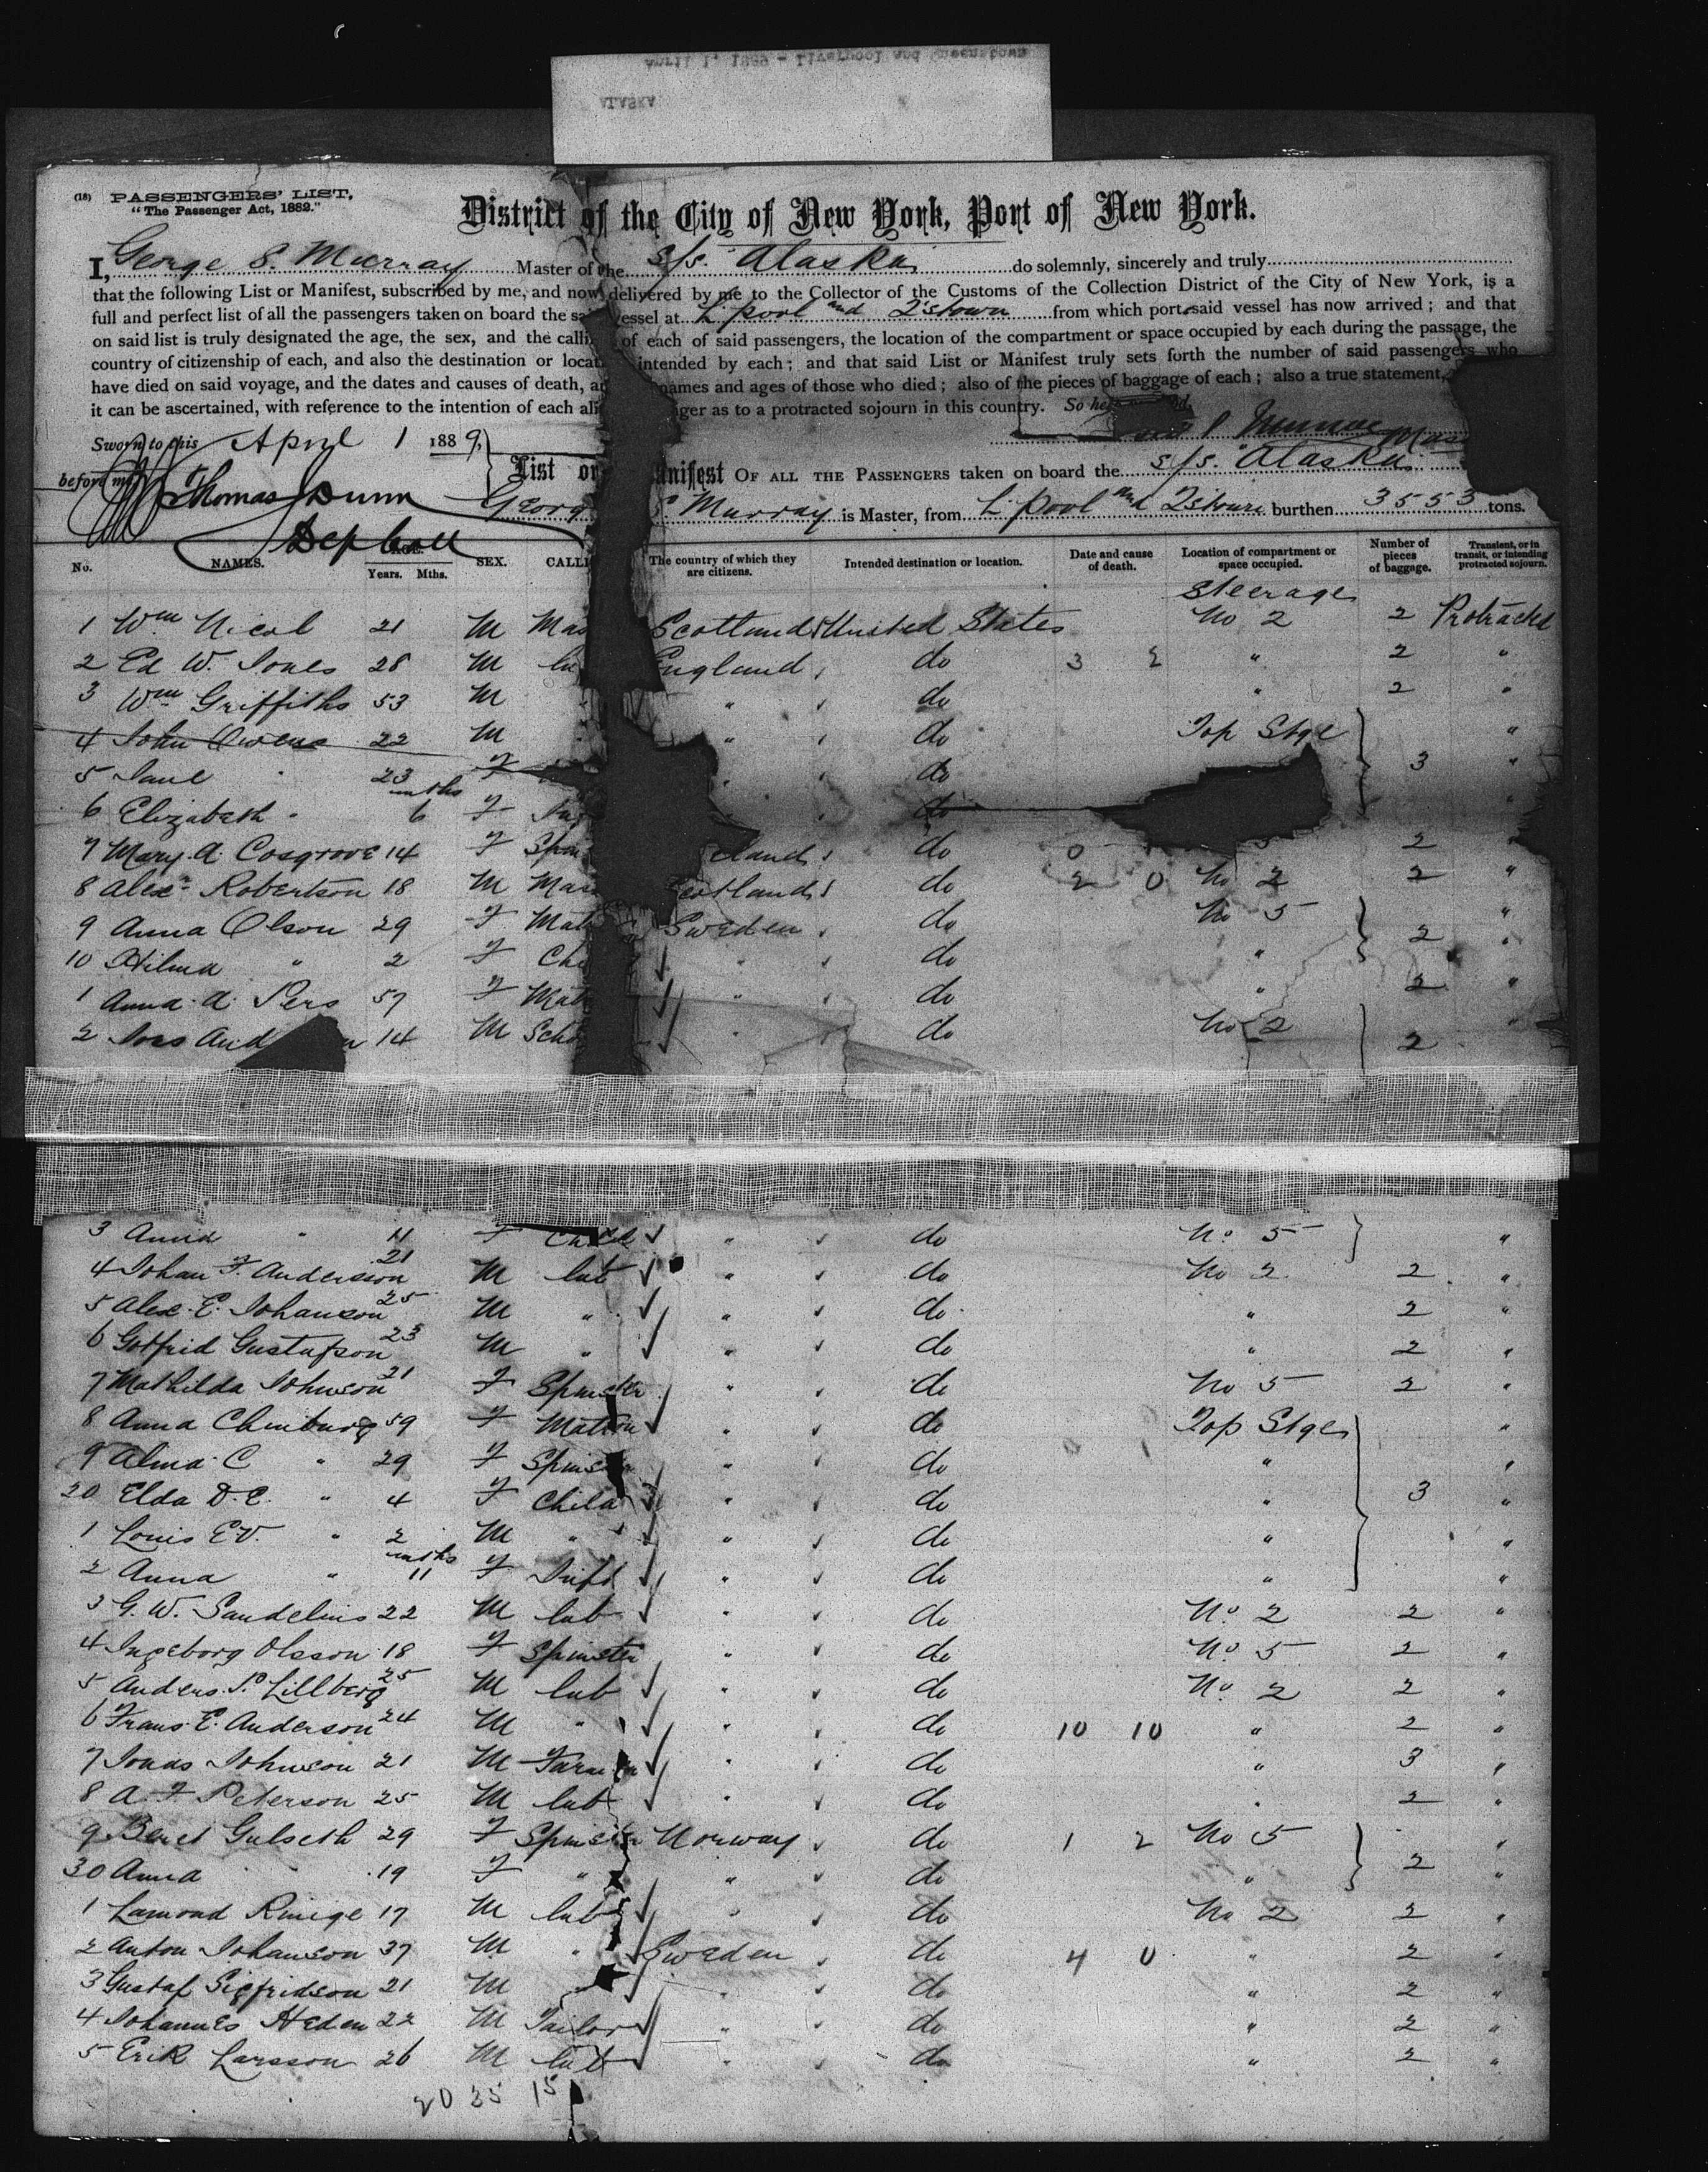 April 1, 1889 - Liverpool and Queenstown
ALASKA
(18) PASSENGERS' LIST,
"The Passenger Act, 1882."
District of the City of New York, Port of New York.
I, George S. Murray Master of the s/s. Alaska do solemnly, sincerely and truly
that the following List or Manifest, subscribed by me, and now delivered by me to the Collector of the Customs of the Collection District of the City of New York, is a
full and perfect list of all the passengers taken on board the vessel at L'pool and Q'stown from which port said vessel has now arrived; and that
on said list is truly designated the age, the sex, and the of each of said passengers, the location of the compartment or space occupied by each during the passage, the
country of citizenship of each, and also the destination or intended by each; and that said List or Manifest truly sets forth the number of said passengers who
have died on said voyage, and the dates and causes of death, names and ages of those who died; also of the pieces of baggage of each; also a true statement,
it can be ascertained, with reference to the intention of each as to a protracted sojourn in this country. So
Sworn to this April 1 1889,
before me Thomas Dunn
Dep Coll
List or Manifest OF ALL THE PASSENGERS taken on board the s/s. Alaska
Murray is Master, from L'pool and Q'stown burthen 3553 tons.
No. NAMES. AGE. Years. Mths. SEX. The country of which they are citizens. Intended destination or location. Date and cause of death. Location of compartment or space occupied. Number of pieces of baggage. Transient, or in transit, or intending protracted sojourn.
Steerage
1 Wm Nicol 21 M Scotland United States No 2 2
2 Ed W. Jones 28 M England do 3 2 " 2 "
3 Wm Griffiths 53 M " do " 2 "
4 John Owens 22 M " do Top Stge "
5 Jane " 23 F " do 3 "
6 Elizabeth " mths 6 F do "
7 Mary A. Cosgrove 14 F do 2
8 Alexr Robertson 18 M do 2 0 No 2 2 "
9 Anna Olson 29 F Sweden do No 5 2 "
10 Hilma " 2 F " do " "
1 Anna A. Pers 57 F " do " 2 "
2 14 M " do No 2 2 "
3 Anna " 11 F Child " do No 5 "
4 Johan F. Anderson 21 M lab " do No 2 2 "
5 Alex. E. Johanson 25 M " " do " 2 "
6 Gotfrid Gustafson 23 M " " do " 2 "
7 Mathilda Johnson 21 F Spinster " do No 5 2 "
8 Anna 59 F Matron " do Top Stge "
9 Alma C " 29 F Spinster " do " "
20 Elda D. E. " 4 F Child " do " 3 "
1 Louis E V. " 2 M " " do " "
2 Anna " mths 11 F Inft " do " "
3 G. W. Sandelius 22 M lab " do No 2 2 "
4 Ingeborg Olsson 18 F Spinster " do No 5 2 "
5 Anders P. Lillberg 25 M lab " do No 2 2 "
6 Frans E. Anderson 24 M " " do 10 10 " 2 "
7 Jonas Johnson 21 M Farmer " do " 3 "
8 A. F Peterson 25 M lab " do " 2 "
9 Beret Gulseth 29 F Spinster Norway do 1 2 No 5 "
30 Anna " 19 F " " do " 2 "
1 17 M lab " do No 2 2 "
2 Anton Johanson 37 M " Sweden do 4 0 " 2 "
3 Gustaf Sigfridson 21 M " " do " 2 "
4 Johannes Heden 22 M Tailor " do " 2 "
5 Erik Larsson 26 M lab " do " 2 "
20 35 15